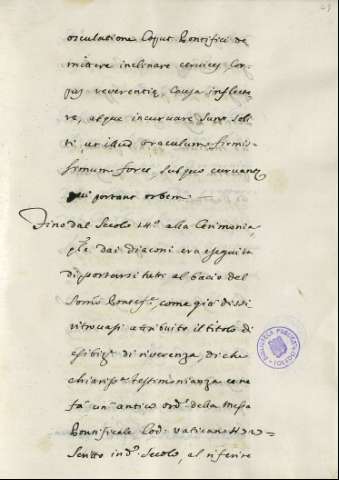 osculatione Caput Pontifici de
mittere inclinare cervices Cor-
pus reverentię Causa inflecte
re, atque incurvare sunt soli
ti, ut illud oraculum firmis-
simum foret, sub quo curvant
qui portant orbem
Fino dal Secolo 14.º alla Cerimonia
pta dai diaconi era eseguita
di portarsi tutti al bacio del
Somo Pontefe, come già dissi
ritrovasi attribuito il titolo di
esibize di riverenza, di che
chiariss testimonianza ce ne
fa un antico Orde della Messa
Pontificale Cod: Vaticano
Scritto in do Secolo, al riferire